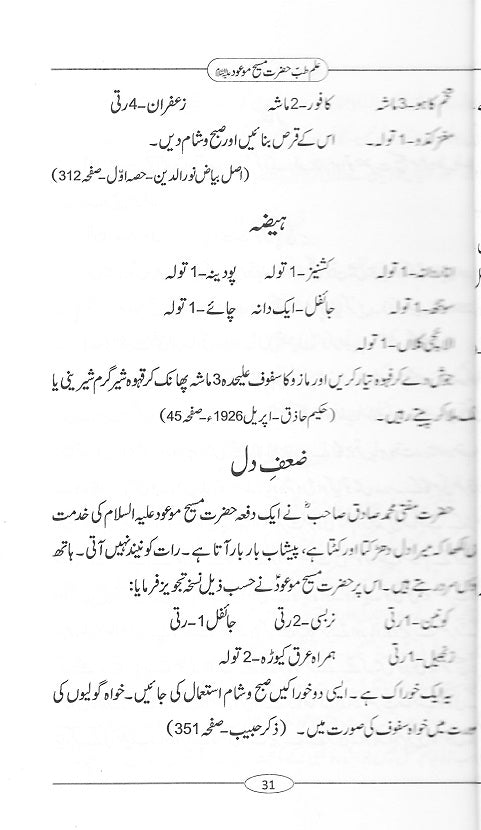 علم طب حضرت مسیح موعود
تخم کاہو-3 ماشہ کافور-2 ماشہ زعفران-4 رتی
مغز کدو-1 تولہ۔ اس کے قرص بنائیں اور صبح و شام دیں۔
(اصل بیاض نورالدین-حصہ اوّل-صفحہ 312)
ہیضہ
انار دانہ-1 تولہ کشنیز-1 تولہ پودینہ-1 تولہ
سونٹھ-1 تولہ جائفل-ایک دانہ چائے-1 تولہ
الائچی کلاں-1 تولہ
جوش دے کر قہوہ تیار کریں اور مازو کا سفوف علیحدہ 3 ماشہ پھانک کر قہوہ شیر گرم شیرینی یا
ملا کر پیتے رہیں۔ (حکیم حاذق-اپریل 1926ء-صفحہ 45)
ضعفِ دل
حضرت مفتی محمد صادق صاحبؓ نے ایک دفعہ حضرت مسیح موعود علیہ السلام کی خدمت
لکھا کہ میرا دل دھڑکتا اور گھٹتا ہے، پیشاب بار بار آتا ہے۔ رات کو نیند نہیں آتی۔ ہاتھ
سرد رہتے ہیں۔ اس پر حضرت مسیح موعودؑ نے حسب ذیل نسخہ تجویز فرمایا:
کونین-1 رتی نربسی-2 رتی جائفل 1-رتی
زنجبیل-1 رتی ہمراہ عرق کیوڑہ-2 تولہ
یہ ایک خوراک ہے۔ ایسی دو خوراکیں صبح و شام استعمال کی جائیں۔ خواہ گولیوں کی
صورت میں خواہ سفوف کی صورت میں۔ (ذکر حبیب-صفحہ 351)
31